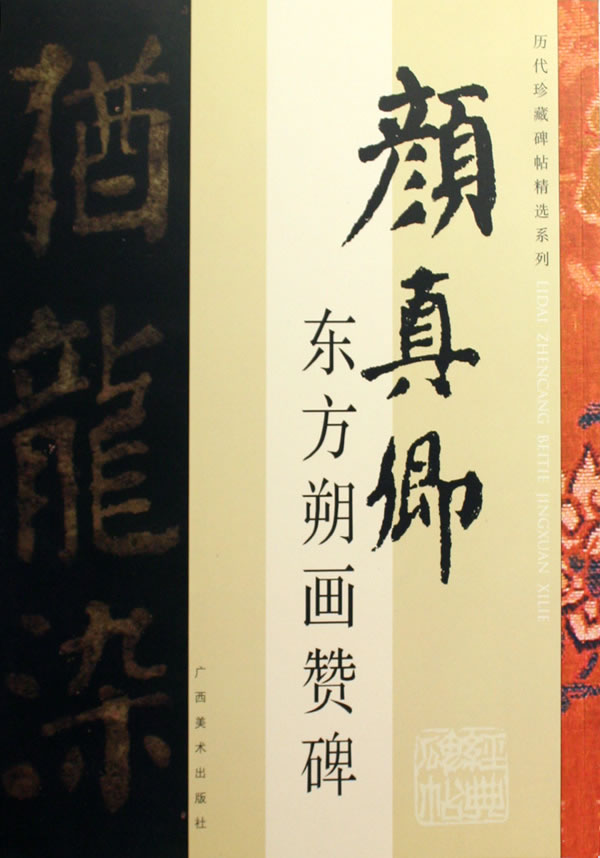 历代珍藏碑帖精选系列
LIDAI ZHENCANG BEITIE JINGXUAN XILIE
顏真卿
东方朔画赞碑
经典
碑帖
广西美术出版社
猶龍染